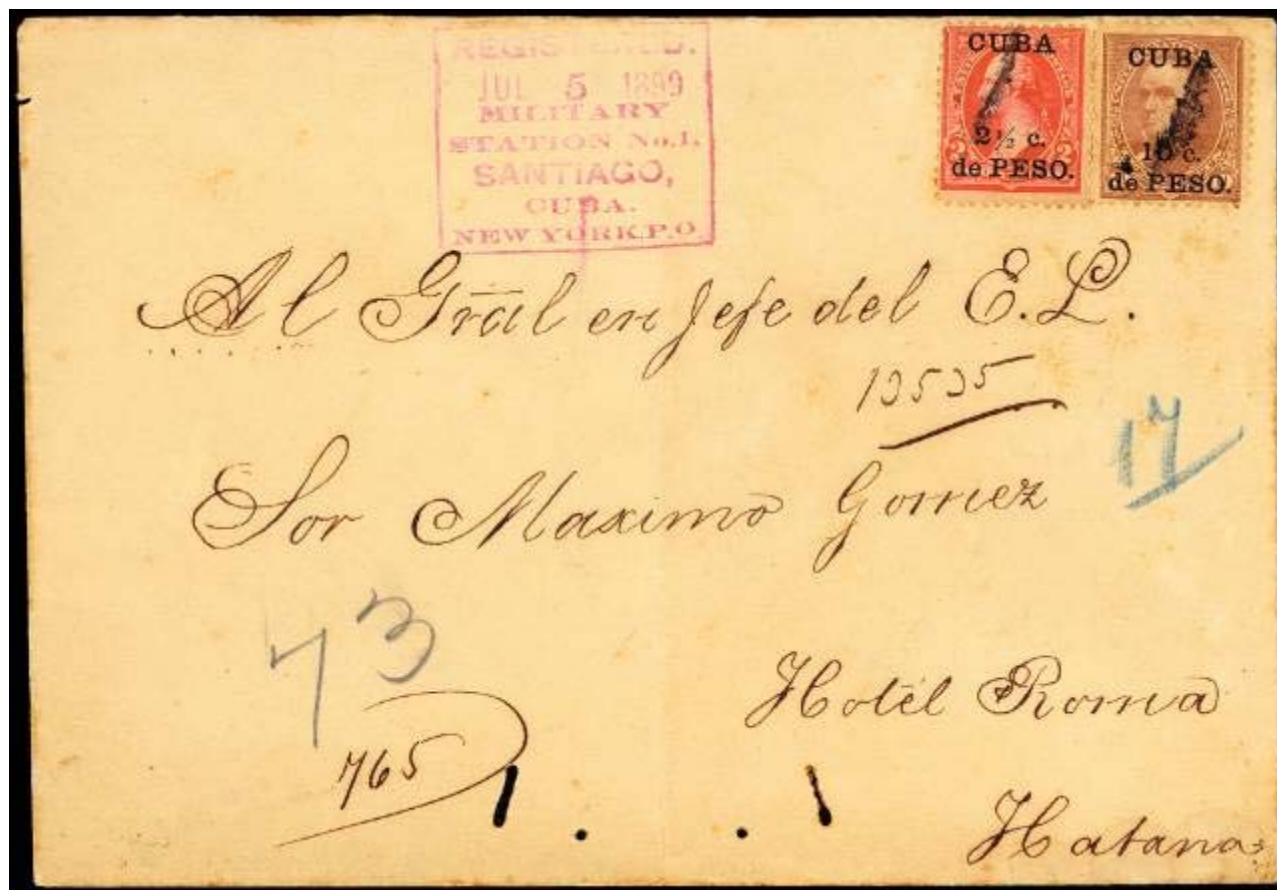 REGISTERED.
JUL 5 1899
MILITARY
STATION No. 1.
SANTIAGO,
CUBA.
NEW YORK P.O.
CUBA
2½ c.
de PESO.
CUBA
10 c.
de PESO.
Al Gräl en Jefe del E. L.
13535
17
Sor Maximo Gomez
73
765
Hotel Roma
Habana